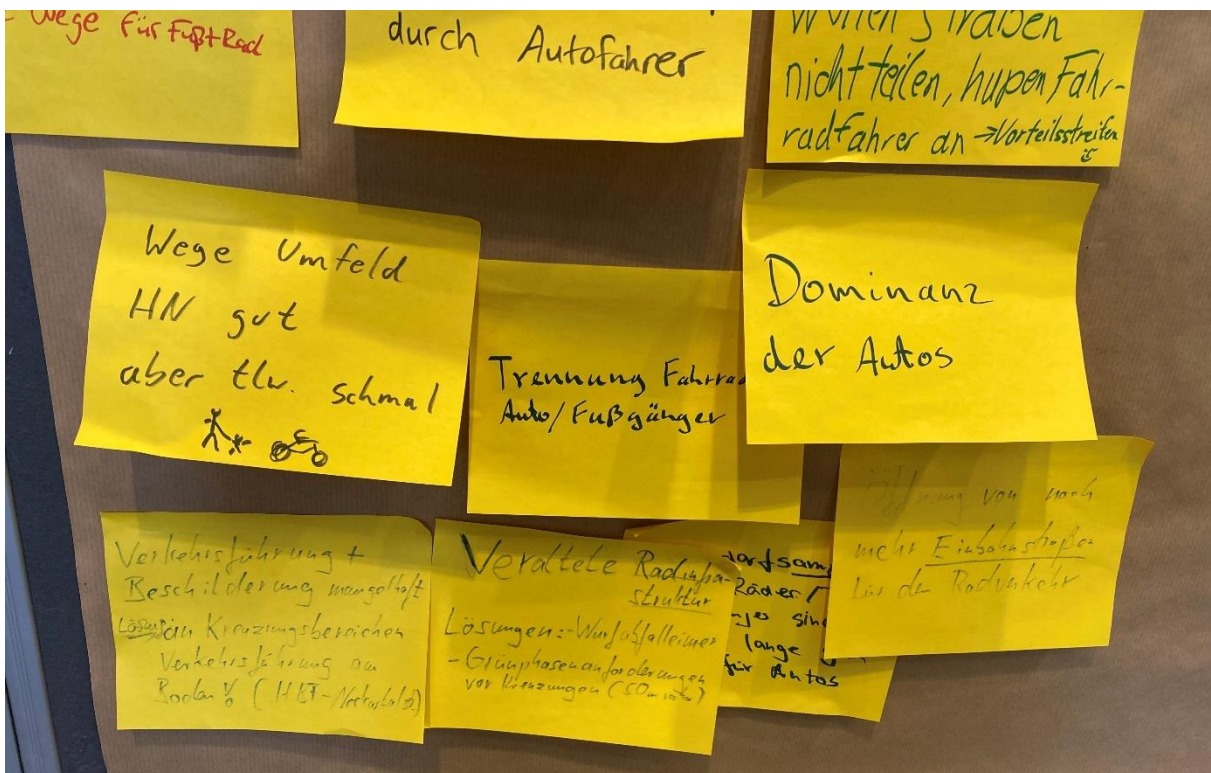 Wege für Fuß+Rad
durch Autofahrer
wollen Straßen
nicht teilen, hupen Fahr-
radfahrer an →Vorteilsstreifen
Wege Umfeld
HN gut
aber tlw. schmal
Trennung Fahrrad
Auto/Fußgänger
Dominanz
der Autos
Verkehrsführung +
Beschilderung mangelhaft
Lösung in Kreuzungsbereichen
Verkehrsführung am
Boden
Veraltete Radinfra-
struktur
Lösungen: - Wurfabfalleimer
- Grünphasenanforderungen
vor Kreuzungen (50m
Räder/
lange
für Autos
Öffnung von noch
mehr Einbahnstraßen
für den Radverkehr